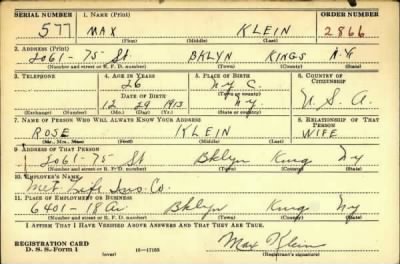 SERIAL NUMBER 1. NAME (Print) ORDER NUMBER
577 MAX KLEIN 2866
(First) (Middle) (Last)
2. ADDRESS (Print)
2061-75 St BKLYN KINGS N.Y
(Number and street or R. F. D. number) (Town) (County) (State)
3. TELEPHONE 4. AGE IN YEARS 5. PLACE OF BIRTH 6. COUNTRY OF CITIZENSHIP
26 N.Y.C.
DATE OF BIRTH (Town or county)
12 29 1913 N.Y. U.S.A.
(Exchange) (Number) (Mo.) (Day) (Yr.) (State or country)
7. NAME OF PERSON WHO WILL ALWAYS KNOW YOUR ADDRESS 8. RELATIONSHIP OF THAT PERSON
ROSE KLEIN WIFE
(Mr., Mrs., Miss) (First) (Middle) (Last)
9. ADDRESS OF THAT PERSON
2061-75 St Bklyn King Ny
(Number and street or R. F. D. number) (Town) (County) (State)
10. EMPLOYER'S NAME
Met Life Ins. Co.
11. PLACE OF EMPLOYMENT OR BUSINESS
6401-18 Av. Bklyn King Ny
(Number and street or R. F. D. number) (Town) (County) (State)
I AFFIRM THAT I HAVE VERIFIED ABOVE ANSWERS AND THAT THEY ARE TRUE.
REGISTRATION CARD
D. S. S. Form 1 (over) 16-17105 Max Klein
(Registrant's signature)